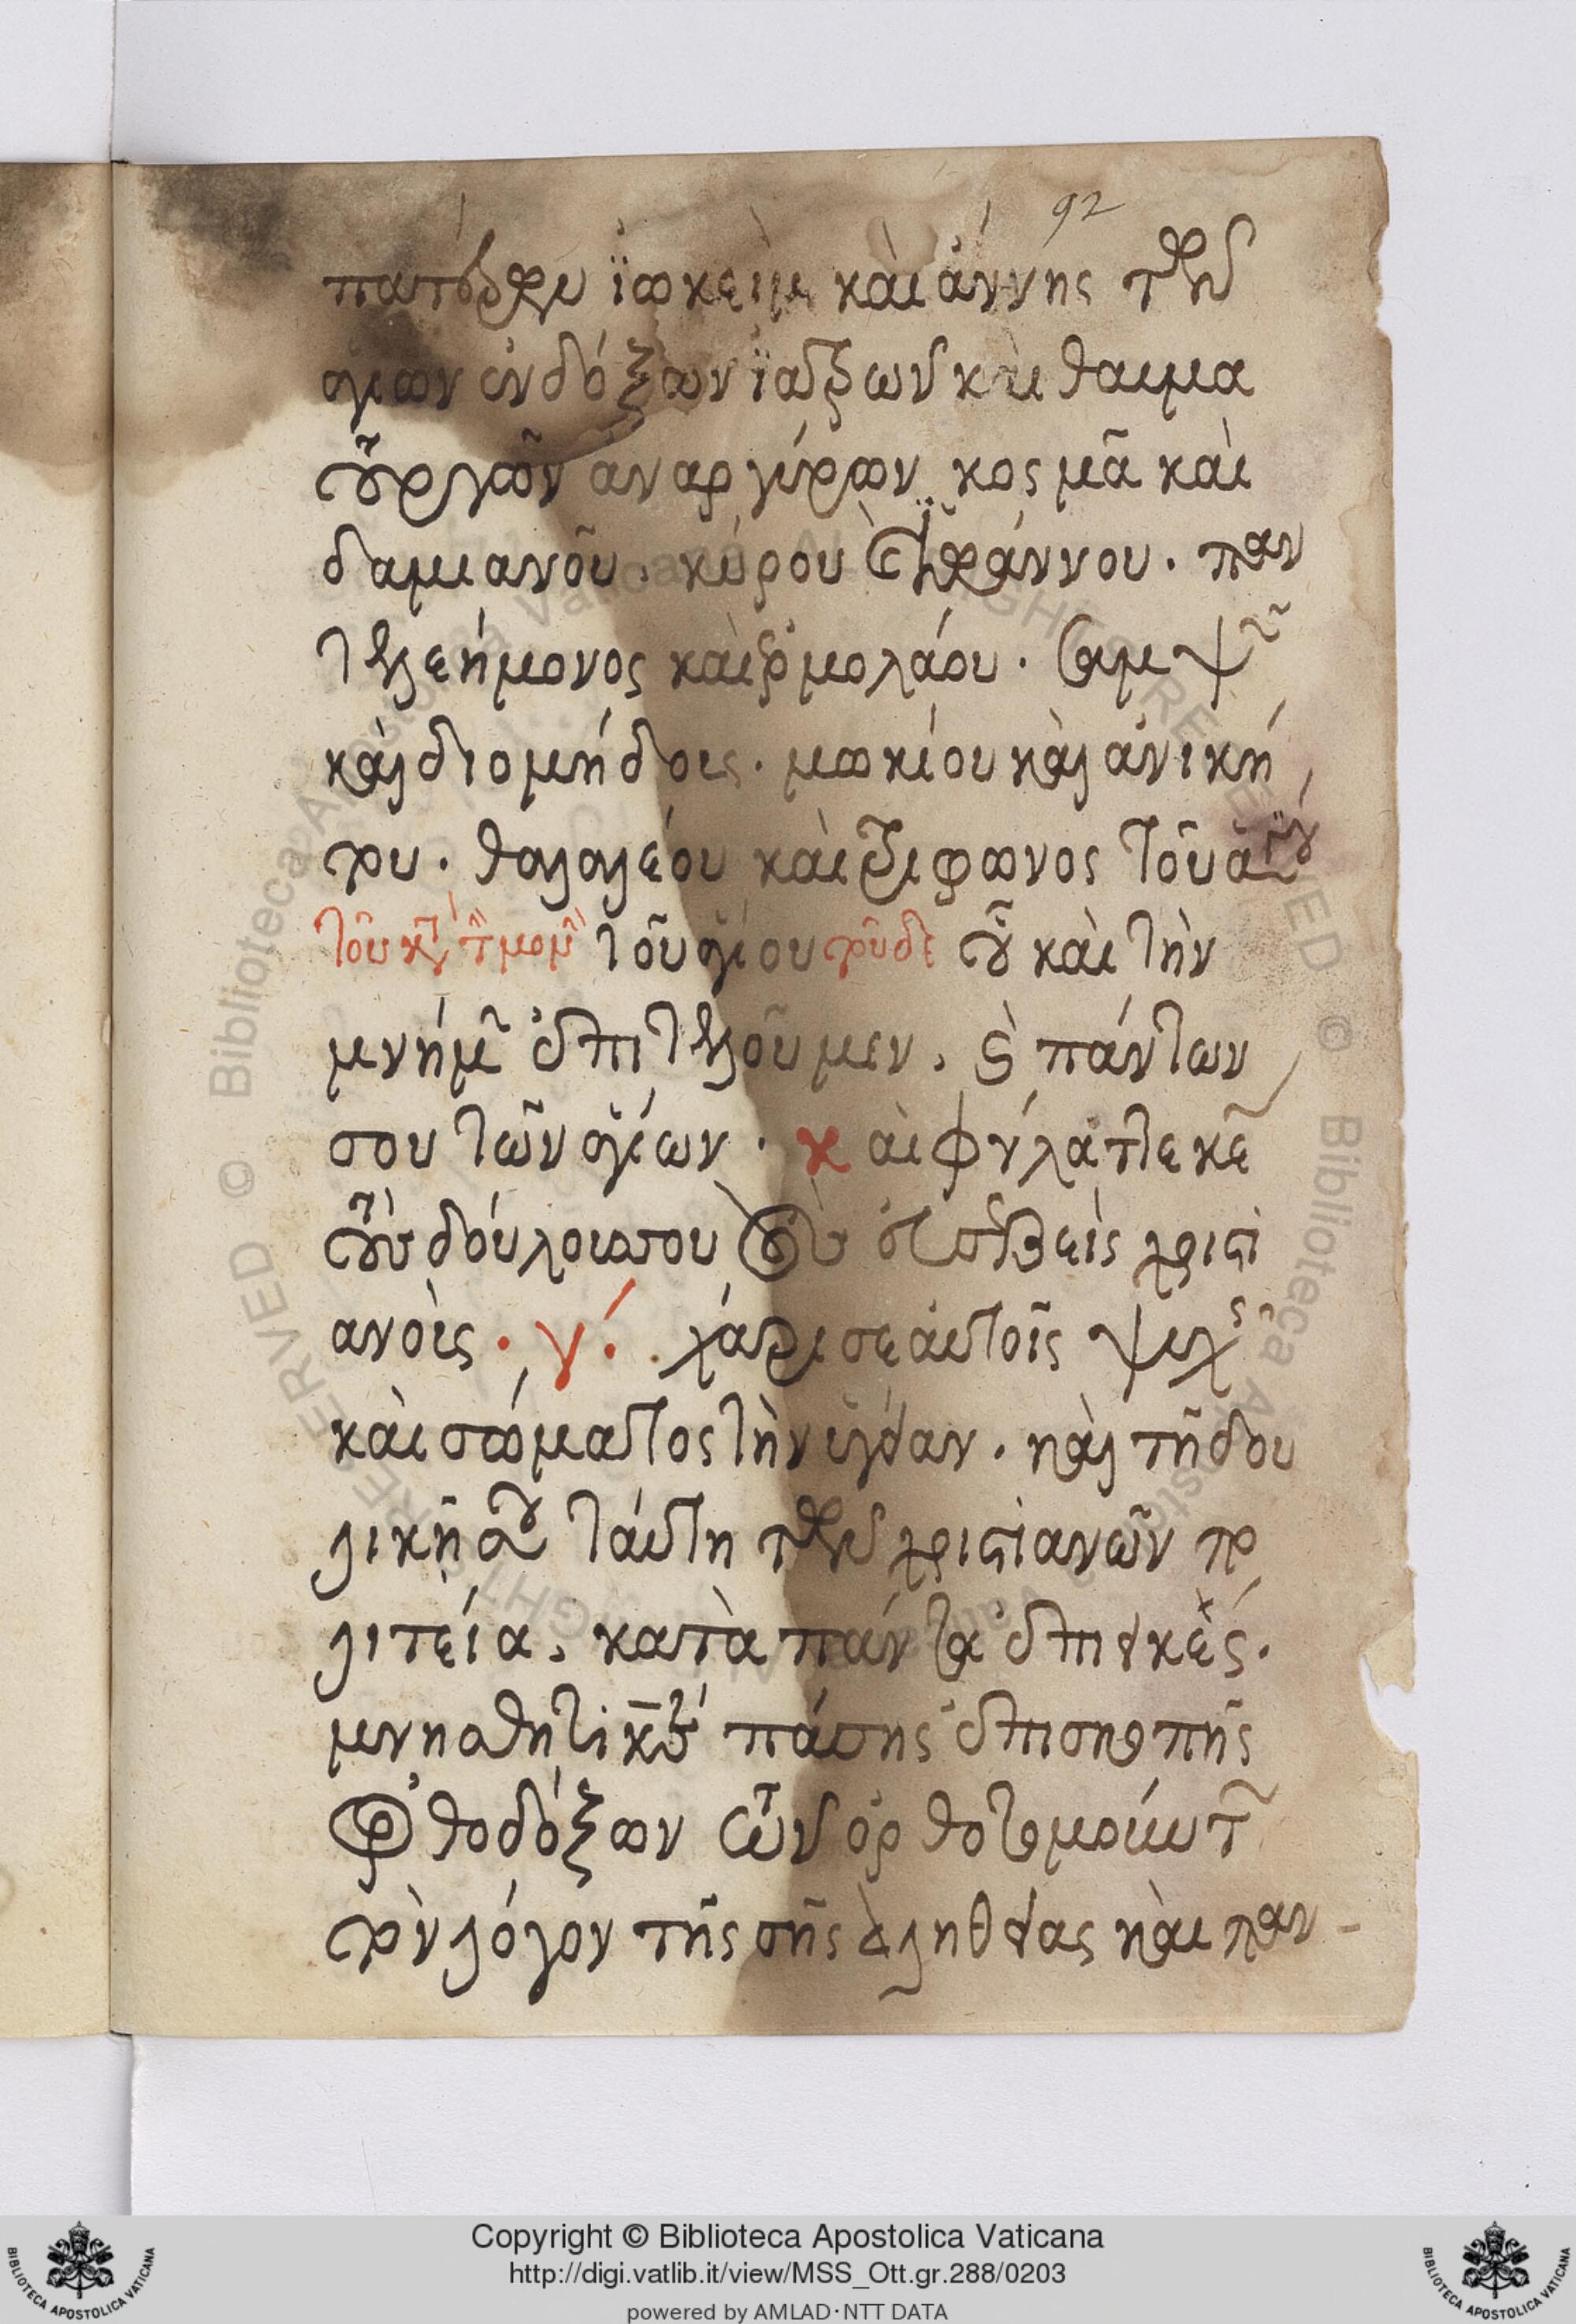 92
πατόρων ϊωκεὶμ καὶ ἄννης τῶν
ἁγίων ἐνδόξων ϊατρῶν καὶ θαυμα
τουργῶν ἀναργύρων κοσμᾶ καὶ
δαμιανοῦ. κύρου καὶ ϊωάννου. παν
τελεήμονος καὶ ἑρμολάου. σαμψ
καὶ διομήδους. μωκίου καὶ ἀνική
του. θαλαλέου καὶ τρίφωνος τοῦ
τοῦ τοῦ ἁγίου τοῦδε οὗ καὶ τὴν
μνήμ ἐπιτελοῦμεν. καὶ πάντων
σου τῶν ἁγίων. καὶ φύλαττε κε
τοὺς δούλους σου τοὺς εὐσεβεῖς χριστι
ανοὺς. γ΄. χάρισε αὐτοῖς ψυχ
καὶ σώματος τὴν ὑγείαν. καὶ τῇ δου
λικῇ σου ταύτῃ τῶν χριστιανῶν πο
λιτεία. κατὰ πάντα ἐπιεικὲς.
μνήσθητι κε πάσης ἐπισκοπῆς
ὀρθοδόξων τῶν ὀρθοτομούντ
τὸν λόγον τῆς σῆς ἀληθείας καὶ παν-
Copyright © Biblioteca Apostolica Vaticana
http://digi.vatlib.it/view/MSS_Ott.gr.288/0203
powered by AMLAD·NTT DATA